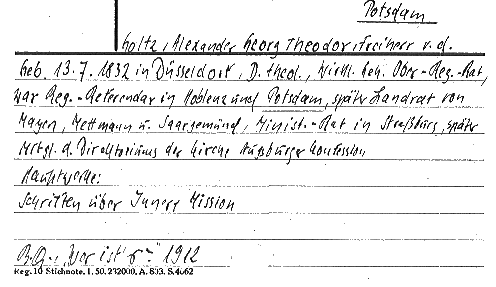 Potsdam
Goltz, Alexander Georg Theodor, Freiherr v. d.
Geb. 13.7.1832 in Düsseldorf, D. theol., Wirkl. Geh. Ober-Reg.-Rat,
war Reg.-Referendar in Koblenz und Potsdam, später Landrat von
Mayen, Mettmann u. Saargemünd, Minist.-Rat in Straßburg, später
Mitgl. d. Direktoriums der Kirche Augsburger Konfession
Hauptwerke:
Schriften über Innere Mission
B.Q.: "Wer ist 1912
Reg. 10 Stichnote. I. 50. 232000. A. 803. S. 4662